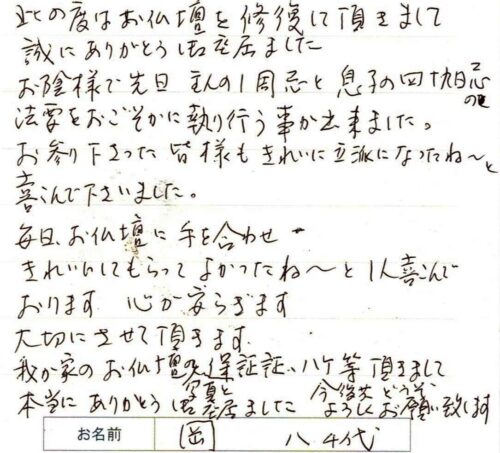 此の度はお仏壇を修復して頂きまして
誠にありがとう御座居ました
お陰様で先日 主人の1周忌と息子の四十九日忌の
法要をおごそかに執り行う事が出来ました。
お参り下さった皆様もきれいに立派になったね〜と
喜んで下さいました。
毎日、お仏壇に手を合わせ
きれいにしてもらってよかったね〜と1人喜んで
おります 心が安らぎます
大切にさせて頂きます
我が家のお仏壇の写真と保証証、ハケ等頂きまして
本当にありがとう御座居ました 今後共どうぞよろしくお願い致します
お名前 岡 八千代